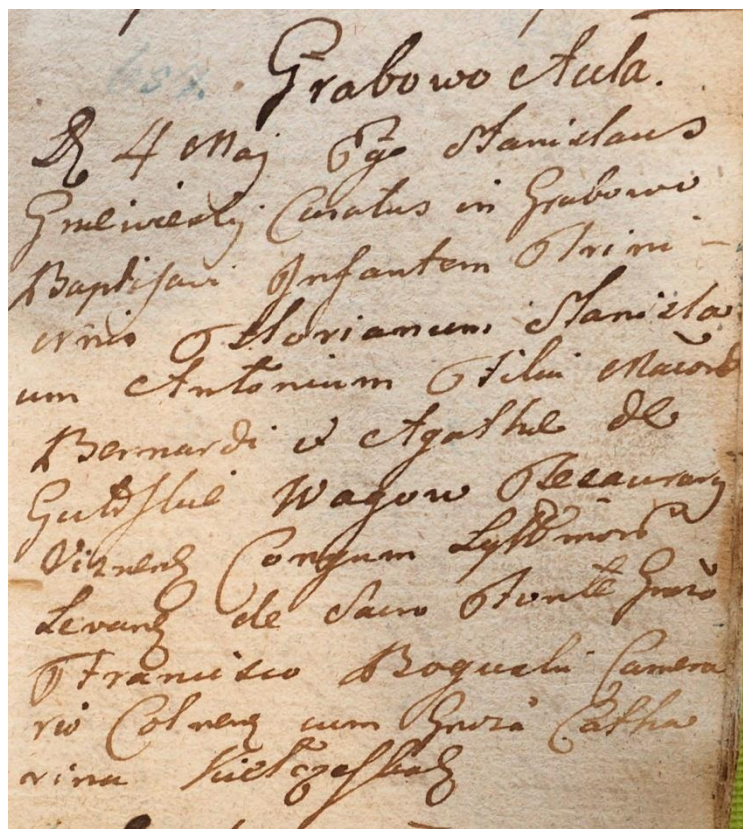 Grabowo Aula.
D 4 Maj Ego Stanislaus
Gmeiwesky Curatus in Grabowo
Baptisavi Infantem Trini-
Florianum Stanisla
um Antonium Filiu Macorũ
Bernardi et Agathe de
Wagow Tesaurarij
Viznens Congum Lgttmorũ
Levans de Sacro Fonte Gneroso
Francisco Boguski Camera
rio Colnens cum Gnrosa Catha
rina